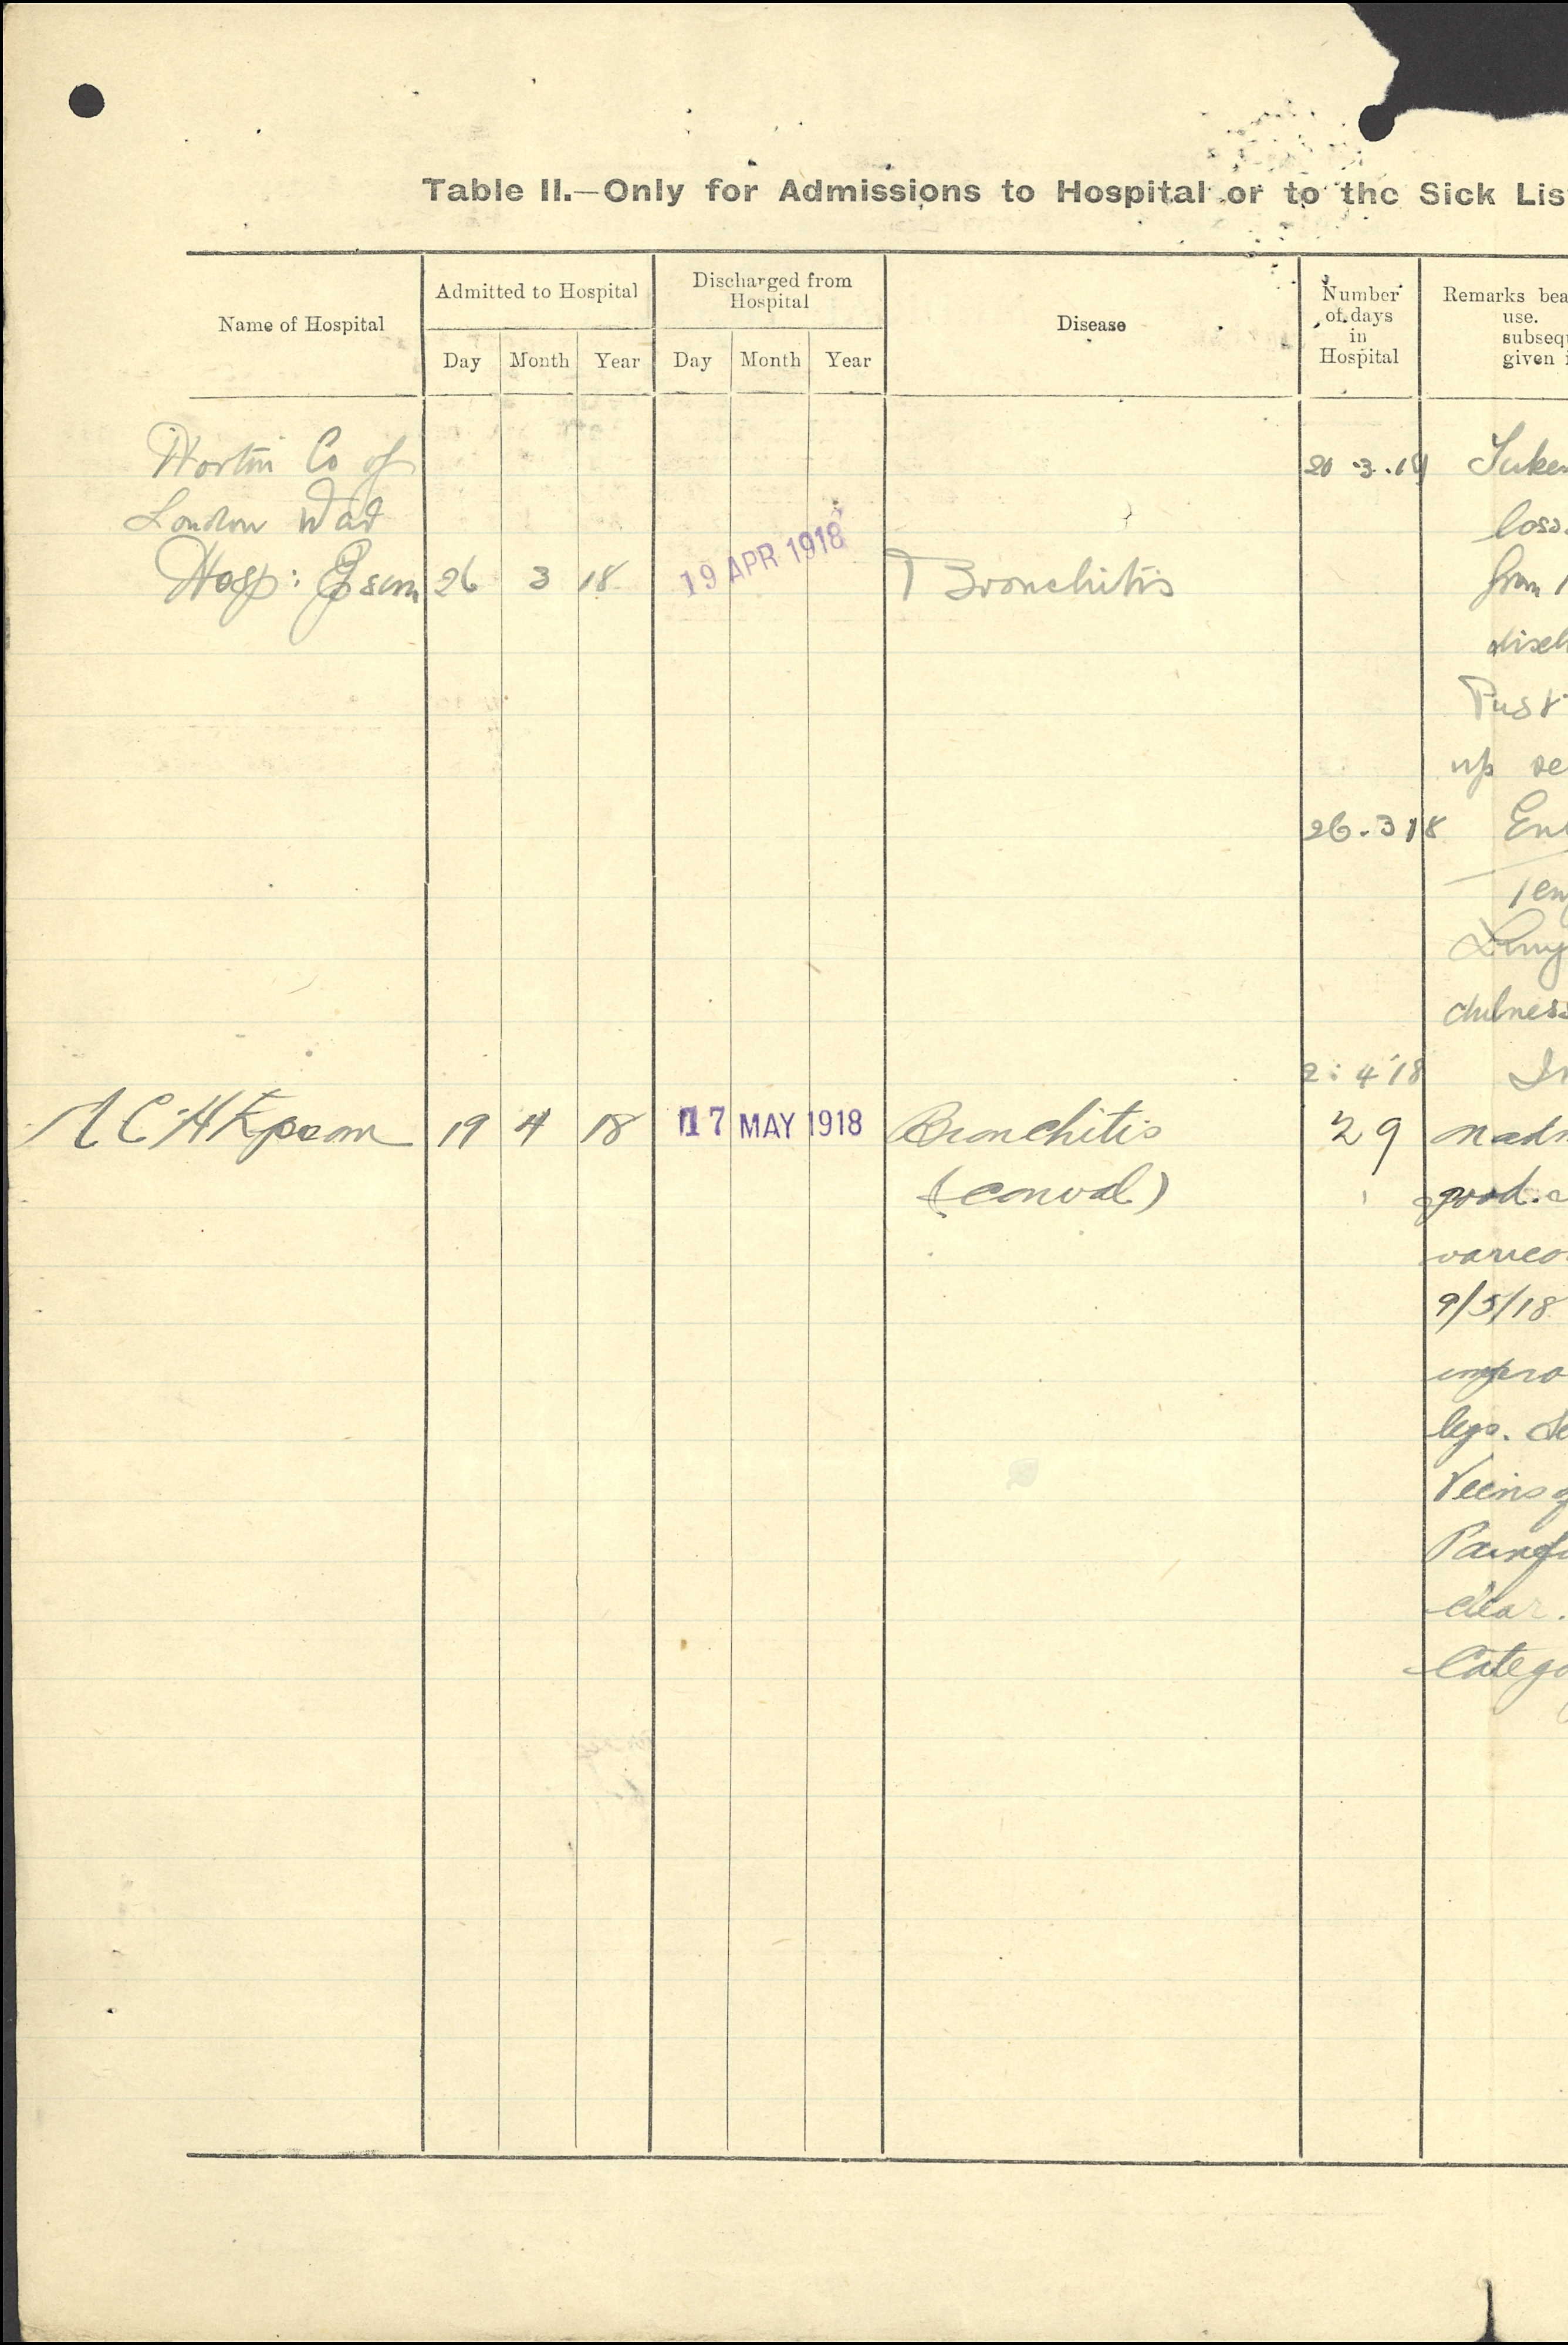 Table II.—Only for Admissions to Hospital or to the Sick Lis
Name of Hospital
Admitted to Hospital
Day Month Year
Discharged from
Hospital
Day Month Year
Disease
Number
of days
in
Hospital
Remarks bea
use.
subseq
given i
Co of 20 3
London War loss
Hosp: 26 3 18 19 APR 1918 Bronchitis from
disch
up se
26.3 18
Lung
dulness
2 4 18
Epsom 19 4 18 17 MAY 1918 Bronchitis 29
(conval) good.
varico
9/5/18
impro
legs.
Veins
Painfu
clear.
Catego